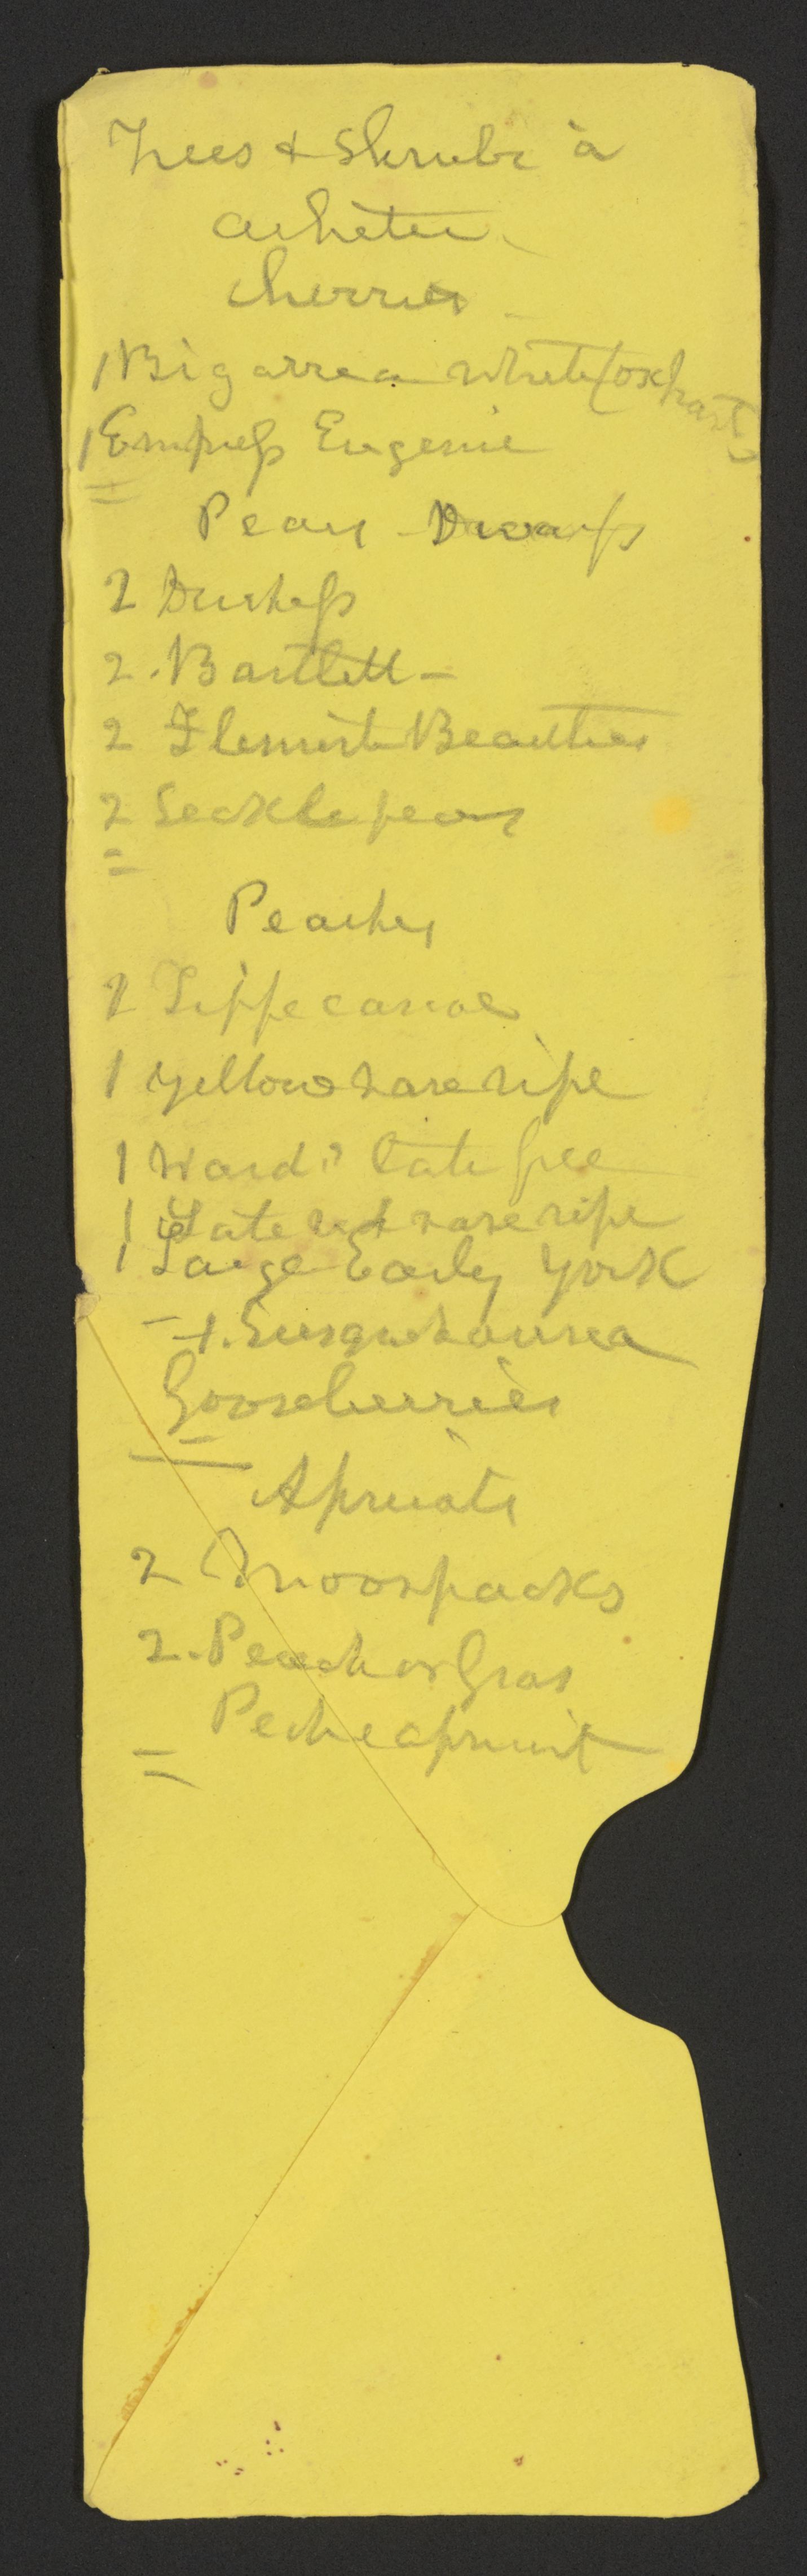 Trees & Shrubs à
acheter
Cherries
1 Bigarrea white (oxheart)
1 Empress Eugenie
Pears Dwarfs
2 Duchess
2. Bartlett -
2 Flemish Beauties
2 Seckle pears
Peaches
Tippecanoe
1 Yellow rareripe
1 Ward's late free
1 Late red rareripe
1 Large Early York
1. Susquehanna
Gooseberries
Apricots
2 Moorpacks
2. Peach or Gros
Peche apricot